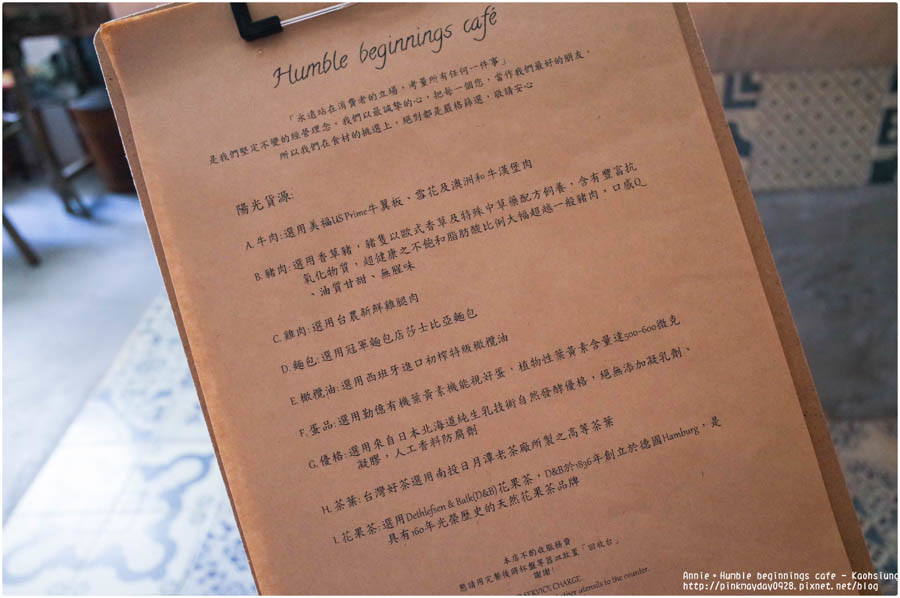 Humble beginnings café
「永遠站在消費者的立場，考量所有任何一件事」
是我們堅定不變的經營理念。我們以最誠摯的心，把每一個您，當作我們最好的朋友。
所以我們在食材的挑選上，絕對都是嚴格篩選，敬請安心
陽光貨源:
A. 牛肉: 選用美福US Prime牛翼板、雪花及澳洲和牛漢堡肉
B. 豬肉: 選用香草豬，豬隻以歐式香草及特殊中草藥配方飼養，含有豐富抗
氧化物質，超健康之不飽和脂肪酸比例大幅超越一般豬肉，口感Q
、油質甘甜、無腥味
C. 雞肉: 選用台農新鮮雞腿肉
D. 麵包: 選用冠軍麵包店莎士比亞麵包
E. 橄欖油: 選用西班牙進口初榨特級橄欖油
F. 蛋品: 選用勤億有機葉黃素機能視好蛋，植物性葉黃素含量達500-600微克
G. 優格: 選用來自日本北海道純生乳技術自然發酵優格，絕無添加凝乳劑、
凝膠，人工香料防腐劑
H. 茶葉: 台灣好茶選用南投日月潭老茶廠所製之高等茶葉
I. 花果茶: 選用Dethlefsen & Balk(D&B)花果茶，D&B於1836年創立於德國Hamburg，是
具有160年光榮歷史的天然花果茶品牌
本店不酌收服務費
懇請用完餐後將杯盤等器皿放置「回收台」
謝謝!
SERVICE CHARGE.
utensils to the counter.
Annie・Humble beginnings cafe - Kaohsiung
http://pinkmayday0928.pixnet.net/blog